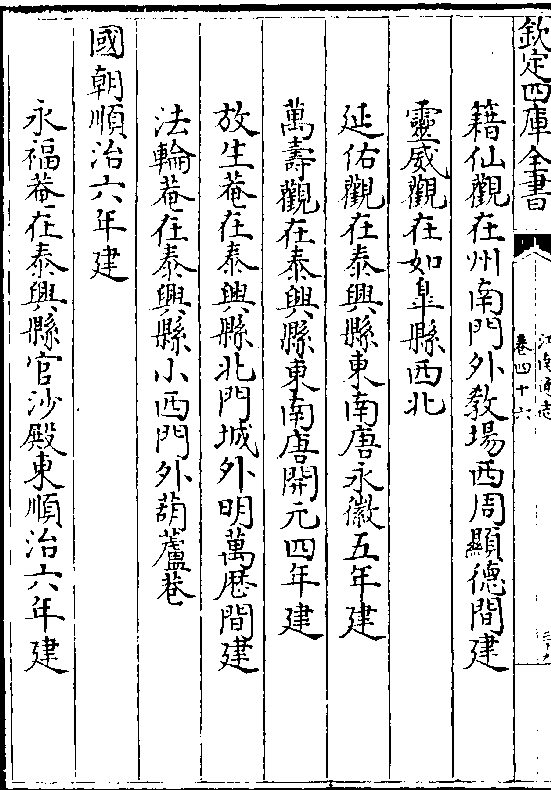 欽定四庫全書
江南通志
卷四十六
籍仙觀在州南門外教場西周顯德間建
靈威觀在如臯縣西北
延佑觀在泰興縣東南唐永徽五年建
萬壽觀在泰興縣東南唐開元四年建
放生菴在泰興縣北門城外明萬厯間建
法輪菴在泰興縣小西門外葫蘆巷
國朝順治六年建
永福菴在泰興縣官沙殿東順治六年建